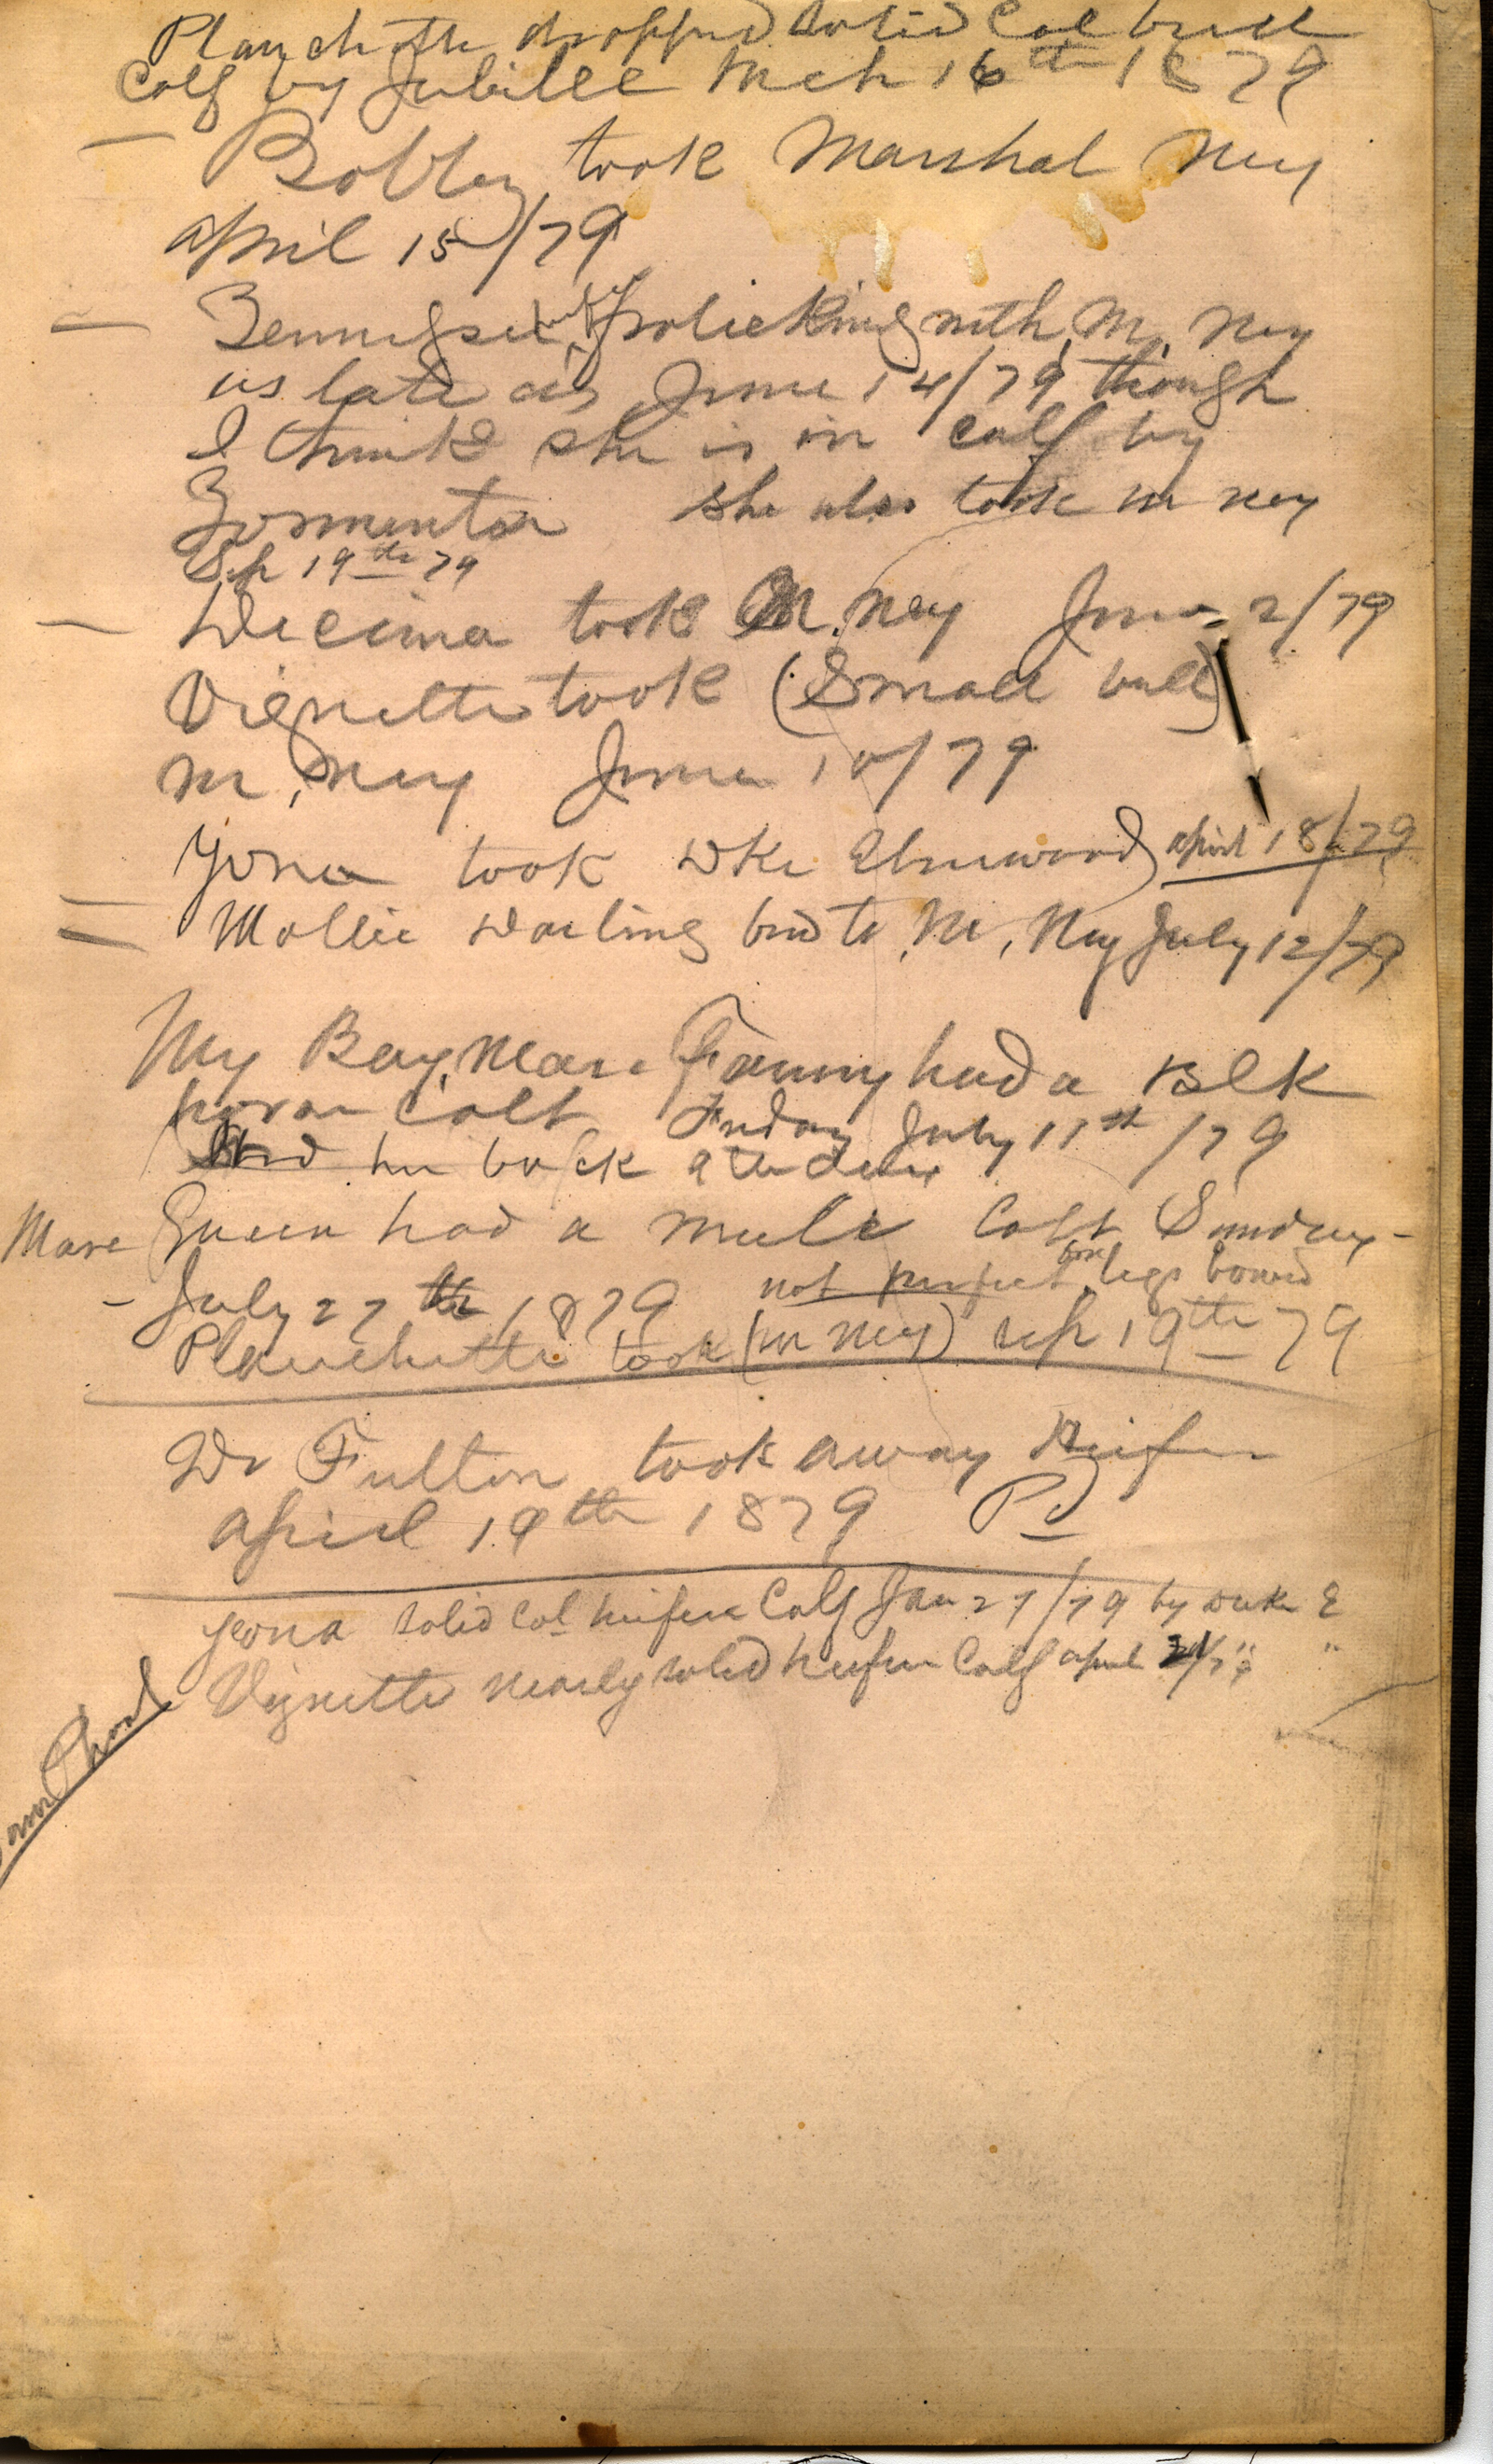 Planchette dropped solid Col bull
Calf by Jubilee Mch 16th 1879
— took Marshal Ney
April 15/79
— frolicking with M. Ney
as late as June 14/79 though
I think she is in calf by
Tormentor she also took M Ney
Sep 19th 79
— Decima took M. Ney June 2/79
Vignette took (Small bull)
M. Ney June 10/79
Yona took Dke Elmwood April 18/79
= Mollie Darling bred to M. Ney July 12/79
My Bay Mare Fanny had a Blk
horse Colt Friday July 11th /79
her back
Mare Queen had a mule Colt Sunday -
- July 27th 1879 not perfect fore legs bowed
Planchette took (M Ney) Sep 19th 79
Dr Fulton took away Heifer
April 19th 1879 Pd
Yeona solid Col heifer Calf Jan 27/79 by Duke E
Vignette nearly solid heifer Calf April " "